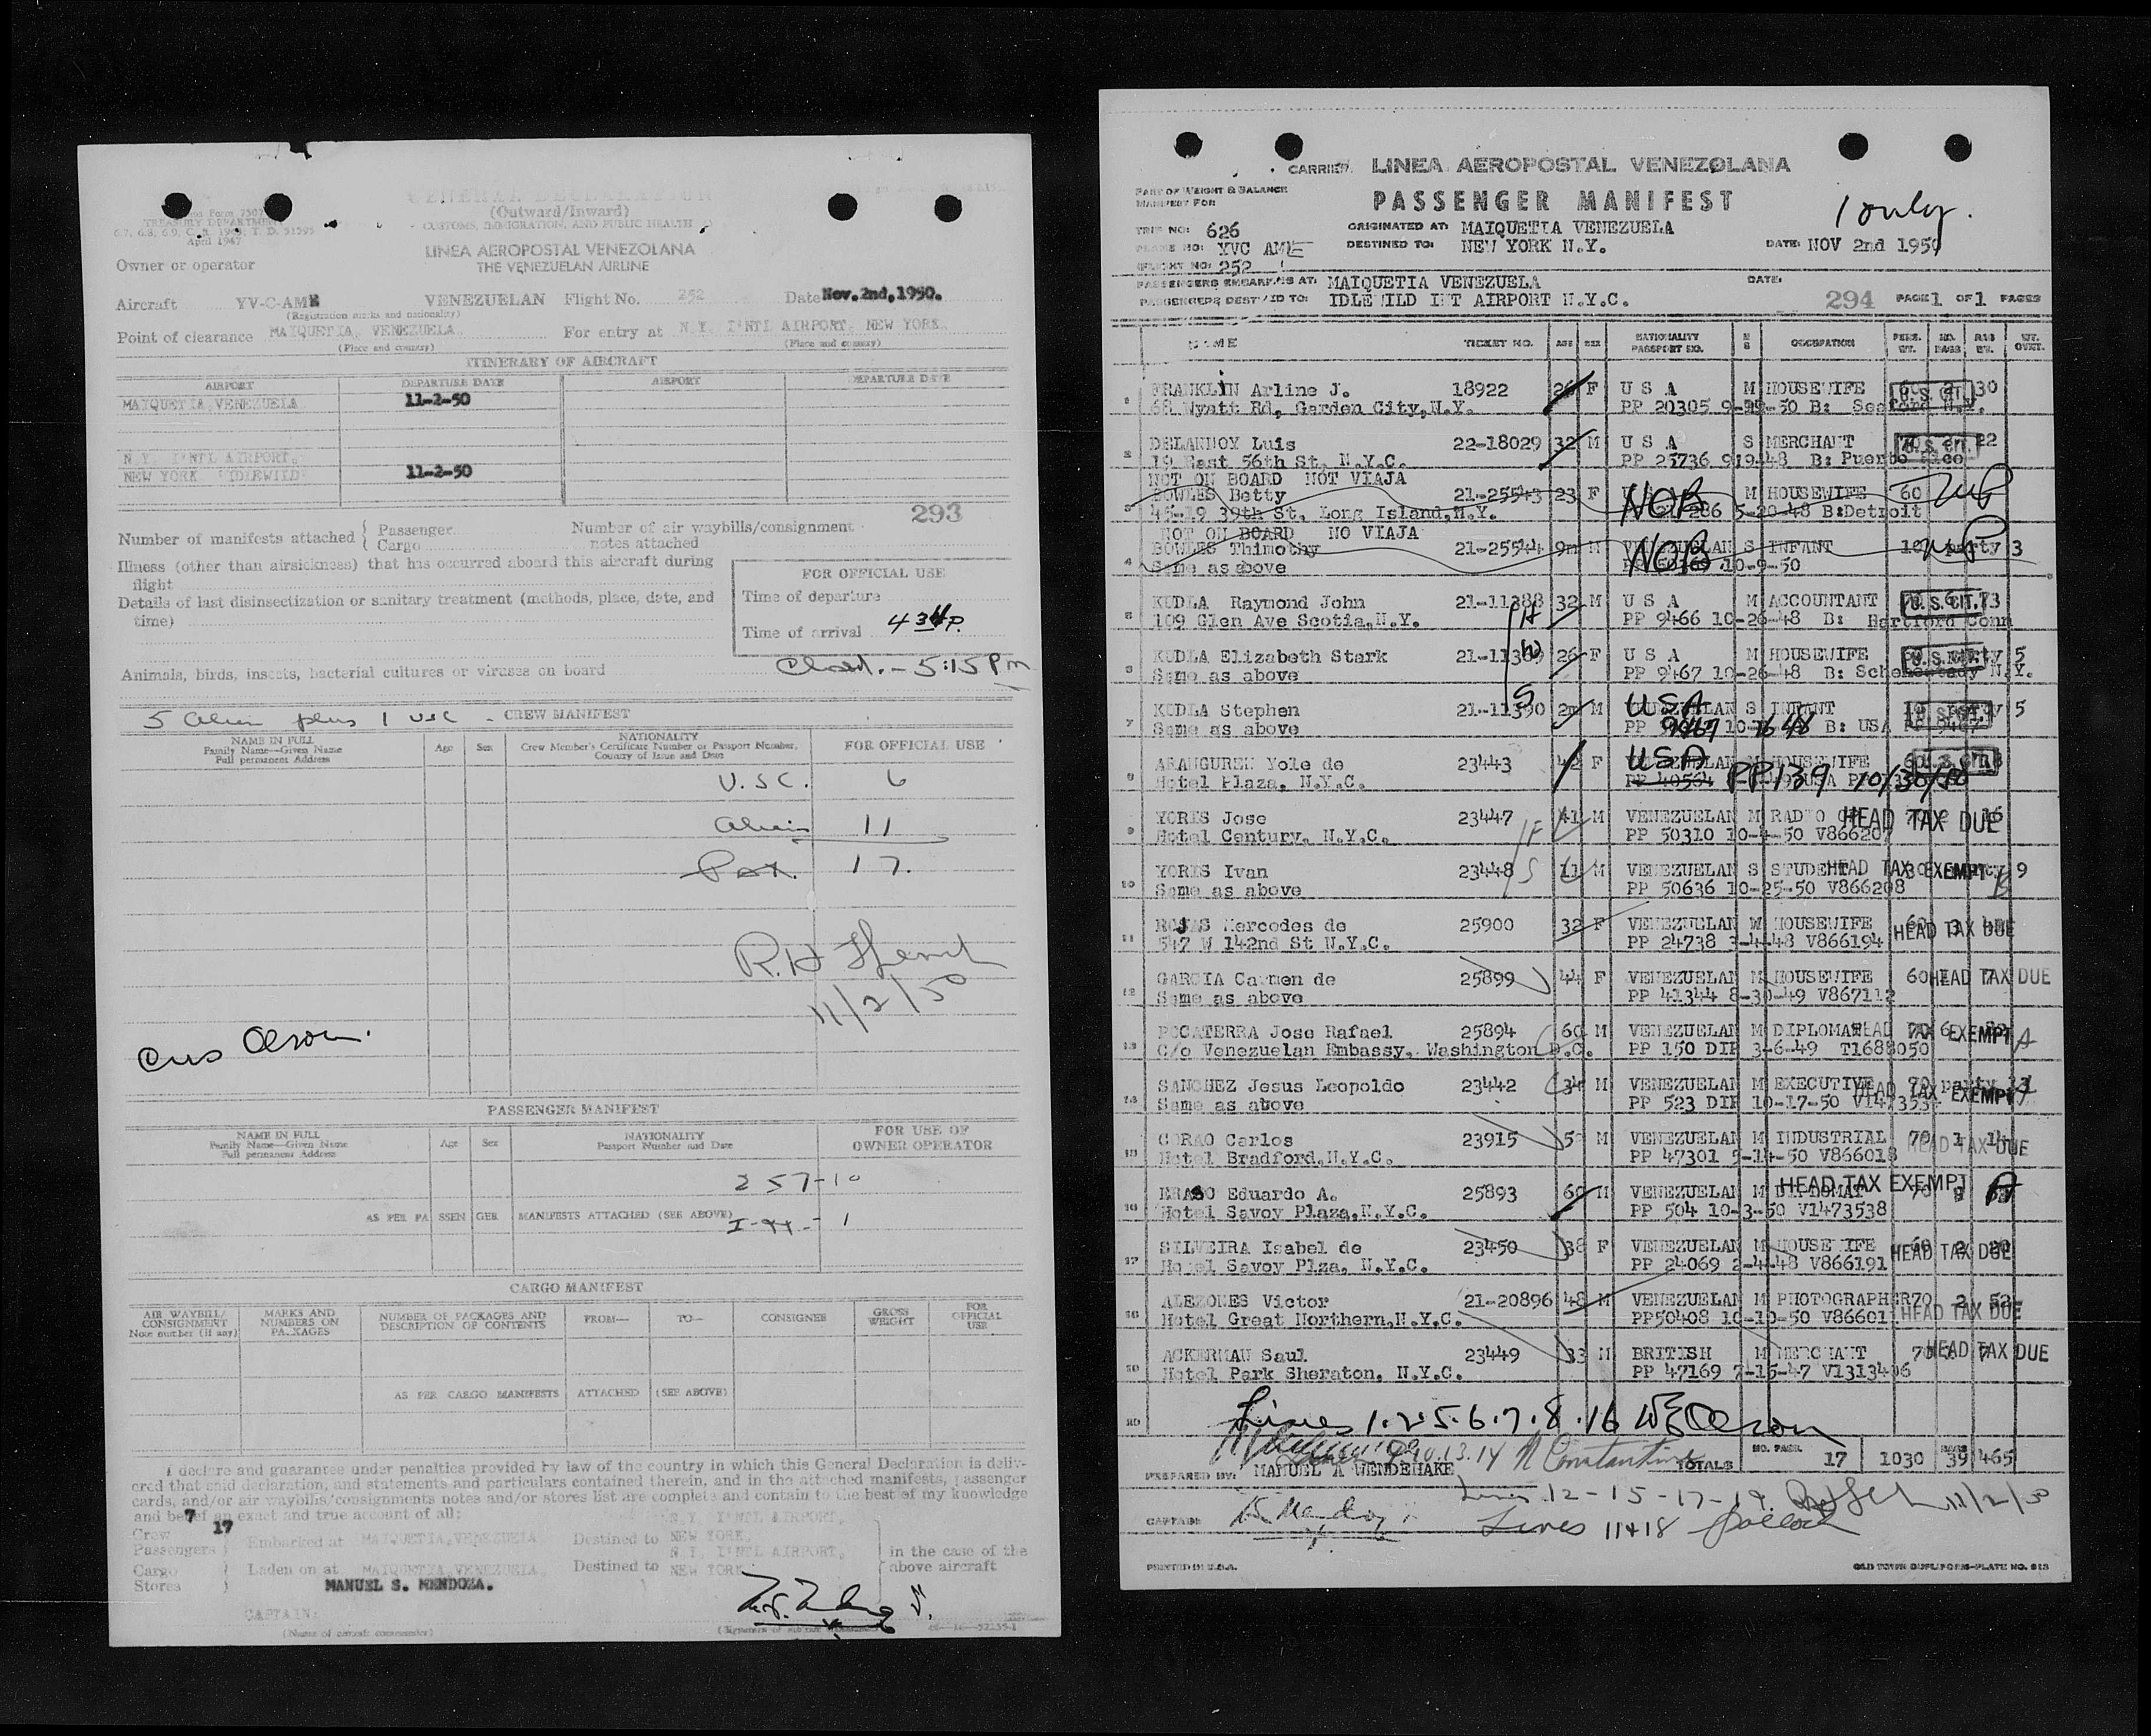 GENERAL DECLARATION
(Outward/Inward)
CUSTOMS, IMMIGRATION, AND PUBLIC HEALTH
Form 7507
TREASURY DEPARTMENT
April 1947
LINEA AEROPOSTAL VENEZOLANA
THE VENEZUELAN AIRLINE
Owner or operator
Aircraft YV-C-AME VENEZUELAN Flight No. 252 Date Nov. 2nd, 1950.
(Registration marks and nationality)
Point of clearance MAIQUETIA, VENEZUELA For entry at N.Y. I'NTL AIRPORT, NEW YORK.
(Place and country) (Place and country)
ITINERARY OF AIRCRAFT
AIRPORT DEPARTURE DATE AIRPORT DEPARTURE DATE
MAIQUETIA, VENEZUELA 11-2-50
N.Y. I'NTL AIRPORT,
NEW YORK "IDLEWILD" 11-2-50
293
Number of manifests attached { Passenger Number of air waybills/consignment
Cargo notes attached
Illness (other than airsickness) that has occurred aboard this aircraft during
flight
Details of last disinsectization or sanitary treatment (methods, place, date, and
time)
FOR OFFICIAL USE
Time of departure
Time of arrival 4 34 P.
Animals, birds, insects, bacterial cultures or viruses on board
Closed. - 5:15 Pm
5 Alien plus 1 USC - CREW MANIFEST
NAME IN FULL
Family Name—Given Name
Full permanent Address
Age Sex
NATIONALITY
Crew Member's Certificate Number or Passport Number,
Country of Issue and Date
FOR OFFICIAL USE
U.SC. 6
alien 11
Pax. 17.
11/2/50
Cus Olson.
PASSENGER MANIFEST
NAME IN FULL
Family Name—Given Name
Full permanent Address
Age Sex
NATIONALITY
Passport Number and Date
FOR USE OF
OWNER OPERATOR
257-10
AS PER PASSENGER MANIFESTS ATTACHED (SEE ABOVE)
I-94 - 1
CARGO MANIFEST
AIR WAYBILL/
CONSIGNMENT
Note number (if any)
MARKS AND
NUMBERS ON
PACKAGES
NUMBER OF PACKAGES AND
DESCRIPTION OF CONTENTS
FROM— TO— CONSIGNEE
GROSS
WEIGHT
FOR
OFFICIAL
USE
AS PER CARGO MANIFESTS ATTACHED (SEE ABOVE)
I declare and guarantee under penalties provided by law of the country in which this General Declaration is deliv-
ered that said declaration, and statements and particulars contained therein, and in the attached manifests, passenger
cards, and/or air waybills/consignments notes and/or stores list are complete and contain to the best of my knowledge
and belief an exact and true account of all:
7
17
Crew
Passengers } Embarked at MAIQUETIA, VENEZUELA Destined to N.Y. I'NTL AIRPORT, NEW YORK,
Cargo
Stores } Laden on at MAIQUETIA, VENEZUELA, Destined to N.Y. I'NTL AIRPORT, NEW YORK
in the case of the
above aircraft
MANUEL S. MENDOZA.
CAPTAIN:
CARRIER LINEA AEROPOSTAL VENEZOLANA
PART OF WEIGHT & BALANCE
MANIFEST FOR
PASSENGER MANIFEST
1 only.
TRIP NO: 626 ORIGINATED AT: MAIQUETIA VENEZUELA
PLANE NO: YVC AME DESTINED TO: NEW YORK N.Y. DATE: NOV 2nd 1950
FLIGHT NO: 252
PASSENGERS EMBARKS AT: MAIQUETIA VENEZUELA DATE:
PASSENGERS DESTINED TO: IDLEWILD INT AIRPORT N.Y.C. 294 PAGE 1 OF 1 PAGES
NAME TICKET NO. AGE SEX NATIONALITY PASSPORT NO. M S OCCUPATION PERS. WT. NO. BAGS BAG WT. WT. OVWT.
1 FRANKLIN Arline J. 18922 F U S A M HOUSEWIFE U.S. CIT. 30
68 Wyatt Rd, Garden City, N.Y. PP 20305 -50 B: Seaford N.Y.
2 DELANNOY Luis 22-18029 32 M U S A S MERCHANT U.S. CIT. 22
19 East 56th St, N.Y.C. PP 25736 9-9-48 B: Puerto Rico
NOT ON BOARD NOT VIAJA
3 BOWLES Betty 21-25543 23 F NOB M HOUSEWIFE 60
45-19 39th St, Long Island, N.Y. 5-20-48 B:Detroit
NOT ON BOARD NO VIAJA
4 BOWLES Thimothy 21-25544 9m M VENEZUELAN S INFANT 10 party 3
Same as above NOB 10-9-50
5 KUDLA Raymond John 21-11388 32 M U S A M ACCOUNTANT U.S. CIT. 73
109 Glen Ave Scotia, N.Y. PP 9466 10-26-48 B: Hartford Conn
6 KUDLA Elizabeth Stark 21-11389 26 F U S A M HOUSEWIFE U.S. CIT. 5
Same as above PP 9467 10-26-48 B: Schenectady N.Y.
7 KUDLA Stephen 21-11390 2m M USA S INFANT 5
Same as above PP 9467 10 26 48 B: USA
8 ARANGUREN Yole de 23443 42 F USA M HOUSEWIFE U.S. CIT.
Hotel Plaza, N.Y.C. PP 40564 PP139 10/30/50
9 YORIS Jose 23447 41 M VENEZUELAN M RADIO HEAD TAX DUE
Hotel Century, N.Y.C. PP 50310 10-4-50 V866207
10 YORIS Ivan 23448 11 M VENEZUELAN S STUDENT HEAD TAX EXEMPT 9
Same as above PP 50636 10-25-50 V866208
11 ROJAS Mercedes de 25900 32 F VENEZUELAN W HOUSEWIFE HEAD TAX DUE
547 W 142nd St N.Y.C. PP 24738 3-4-48 V866194
12 GARCIA Carmen de 25899 44 F VENEZUELAN M HOUSEWIFE 60 HEAD TAX DUE
Same as above PP 41344 8-30-49 V867112
13 POCATERRA Jose Rafael 25894 60 M VENEZUELAN M DIPLOMAT HEAD TAX EXEMPT A
C/o Venezuelan Embassy, Washington D.C. PP 150 DIP 3-6-49 T1688050
14 SANCHEZ Jesus Leopoldo 23442 34 M VENEZUELAN M EXECUTIVE 70 party HEAD TAX EXEMPT
Same as above PP 523 DIP 10-17-50
15 CORAO Carlos 23915 M VENEZUELAN M INDUSTRIAL 70 1 HEAD TAX DUE
Hotel Bradford, N.Y.C. PP 47301 5-14-50 V866018
16 ERASO Eduardo A. 25893 60 M VENEZUELAN M DIPLOMAT HEAD TAX EXEMPT A
Hotel Savoy Plaza, N.Y.C. PP 504 10-3-50 V1473538
17 SILVEIRA Isabel de 23450 38 F VENEZUELAN M HOUSEWIFE HEAD TAX DUE
Hotel Savoy Plza, N.Y.C. PP 24069 2-4-48 V866191
18 ALEZONES Victor 21-20896 48 M VENEZUELAN M PHOTOGRAPHER 70 2 HEAD TAX DUE
Hotel Great Northern, N.Y.C. PP50408 10-10-50
ACKERMAN Saul 23449 33 M BRITISH M MERCHANT HEAD TAX DUE
Hotel Park Sheraton, N.Y.C. PP 47169 7-15-47 V1313406
20 Lines 1.2.5.6.7.8.16 Olson
9.10.13.14 N Constantino TOTALS NO. PASS. 17 1030 BAGS 39 465
PREPARED BY: MANUEL A WENDEHAKE
Lines 12-15-17-19. 11/2/50
CAPTAIN: Lines 11+18 Pollock
PRINTED IN U.S.A. OLD TOWN DUPLIFORM-PLATE NO. 813